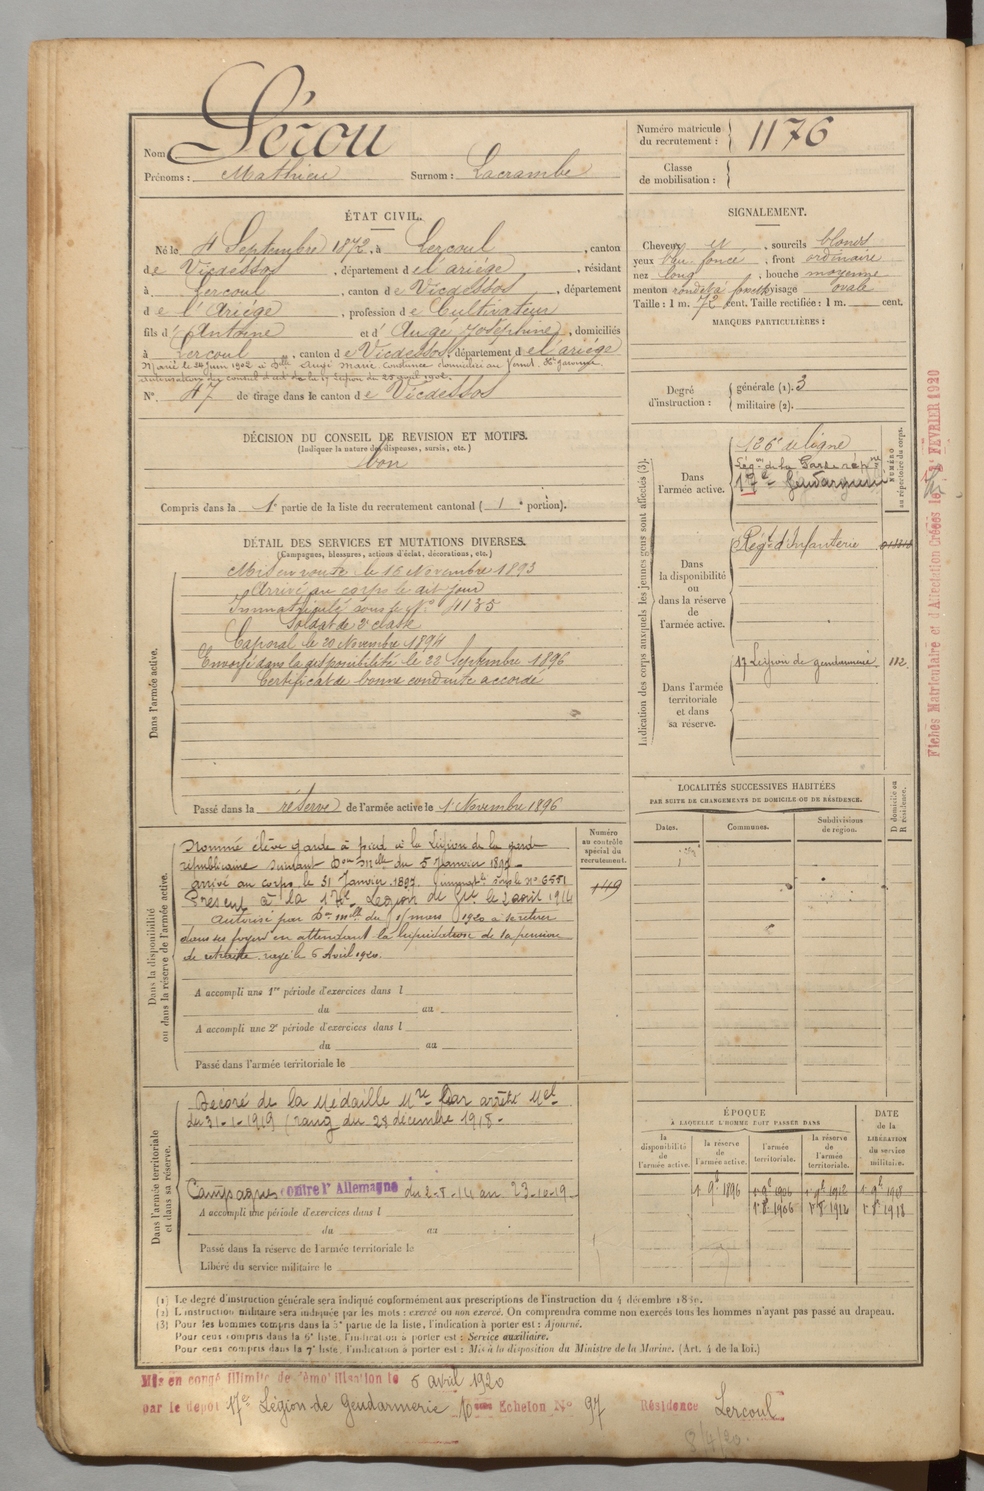 Nom Lérou
Prénoms : Mathieu Surnom : Lacrambe
Numéro matricule du recrutement : 1176
Classe de mobilisation :
ÉTAT CIVIL.
Né le 4 Septembre 1872, à Lercoul, canton
de Vicdessos, département de l'ariége, résidant
à Lercoul, canton de Vicdessos, département
de l'Ariége, profession de Cultivateur
fils d'Antoine et d'Auge Joséphine, domiciliés
à Lercoul, canton de Vicdessos, département de l'ariége
Marié le 24 Juin 1902 à Dlle Augé Marie Constance domiciliée au Vernet, Hte Garonne,
autorisation du conseil d'ad. de la 17 Légion du 25 avril 1902.
N°. 47 de tirage dans le canton de Vicdessos
SIGNALEMENT.
Cheveux et , sourcils blonds
yeux bleu foncé , front ordinaire
nez long , bouche moyenne
menton rond visage ovale
Taille : 1 m. 72 cent. Taille rectifiée : 1 m. cent.
MARQUES PARTICULIÈRES :
Degré d'instruction :
générale (1). 3
militaire (2).
DÉCISION DU CONSEIL DE REVISION ET MOTIFS.
(Indiquer la nature des dispenses, sursis, etc.)
bon
Compris dans la 1e partie de la liste du recrutement cantonal ( 1e portion).
DÉTAIL DES SERVICES ET MUTATIONS DIVERSES.
(Campagnes, blessures, actions d'éclat, décorations, etc.)
Dans l'armée active.
Mis en route le 16 Novembre 1893
Arrivé au corps le dit jour
Immatriculé sous le N° 1135
Soldat de 2e classe
Caporal le 20 Novembre 1894
Envoyé dans la disponibilité le 22 Septembre 1896
Certificat de bonne conduite accordé
Passé dans la réserve de l'armée active le 1 Novembre 1896
Indication des corps auxquels les jeunes gens sont affectés (3).
Dans l'armée active.
126e de ligne
Légon de la Garde répne
17e Gendarmerie
NUMÉRO au répertoire du corps.
Dans la disponibilité ou dans la réserve de l'armée active.
Régt d'Infanterie
Dans l'armée territoriale et dans sa réserve.
17 Légion de gendarmerie 112.
Fiches Matriculaire et d'Affectation Créées le 1er FÉVRIER 1920
LOCALITÉS SUCCESSIVES HABITÉES
PAR SUITE DE CHANGEMENTS DE DOMICILE OU DE RÉSIDENCE.
Dates. Communes. Subdivisions de région. D domicile ou R résidence.
Dans la disponibilité ou dans la réserve de l'armée active.
Numéro au contrôle spécial du recrutement.
149
Nommé élève garde à pied à la Légion de la garde
républicaine suivant Don Mlle du 5 Janvier 1897
arrivé au corps le 31 Janvier 1897 Immatlé sous le N° 6551
Présent à la 17e Légion de Gie le 2 août 1914
Autorisé par Don mlle du mars 1920 à rentrer
dans ses foyers en attendant la liquidation de sa pension
de retraite. rayé le 6 Avril 1920.
A accompli une 1re période d'exercices dans l
du au
A accompli une 2e période d'exercices dans l
du au
Passé dans l'armée territoriale le
Dans l'armée territoriale et dans sa réserve.
Décoré de la Médaille Mre par arrêté Mel
du 31-1-1919 (rang du 28 décembre 1918.
Campagnes contre l'Allemagne du 2-8-14 au 23-10-19
A accompli une période d'exercices dans l
du au
Passé dans la réserve de l'armée territoriale le
Libéré du service militaire le
ÉPOQUE
À LAQUELLE L'HOMME DOIT PASSER DANS
la disponibilité de l'armée active. la réserve de l'armée active. l'armée territoriale. la réserve de l'armée territoriale.
DATE de la LIBÉRATION du service militaire.
1 9b 1896 1 9b 1906 1 9b 1912 1 9b 1918
1 8b 1906 1 8b 1912 1 8b 1918
(1) Le degré d'instruction générale sera indiqué conformément aux prescriptions de l'instruction du 4 décembre 1889.
(2) L'instruction militaire sera indiquée par les mots : exercé ou non exercé. On comprendra comme non exercés tous les hommes n'ayant pas passé au drapeau.
(3) Pour les hommes compris dans la 5e partie de la liste, l'indication à porter est : Ajourné.
Pour ceux compris dans la 6e liste, l'indication à porter est : Service auxiliaire.
Pour ceux compris dans la 7e liste, l'indication à porter est : Mis à la disposition du Ministre de la Marine. (Art. 4 de la loi.)
Mis en congé illimité de démobilisation le 6 avril 1920
par le dépôt 17e Légion de Gendarmerie Echelon N° 97 Résidence Lercoul
8/4/20.